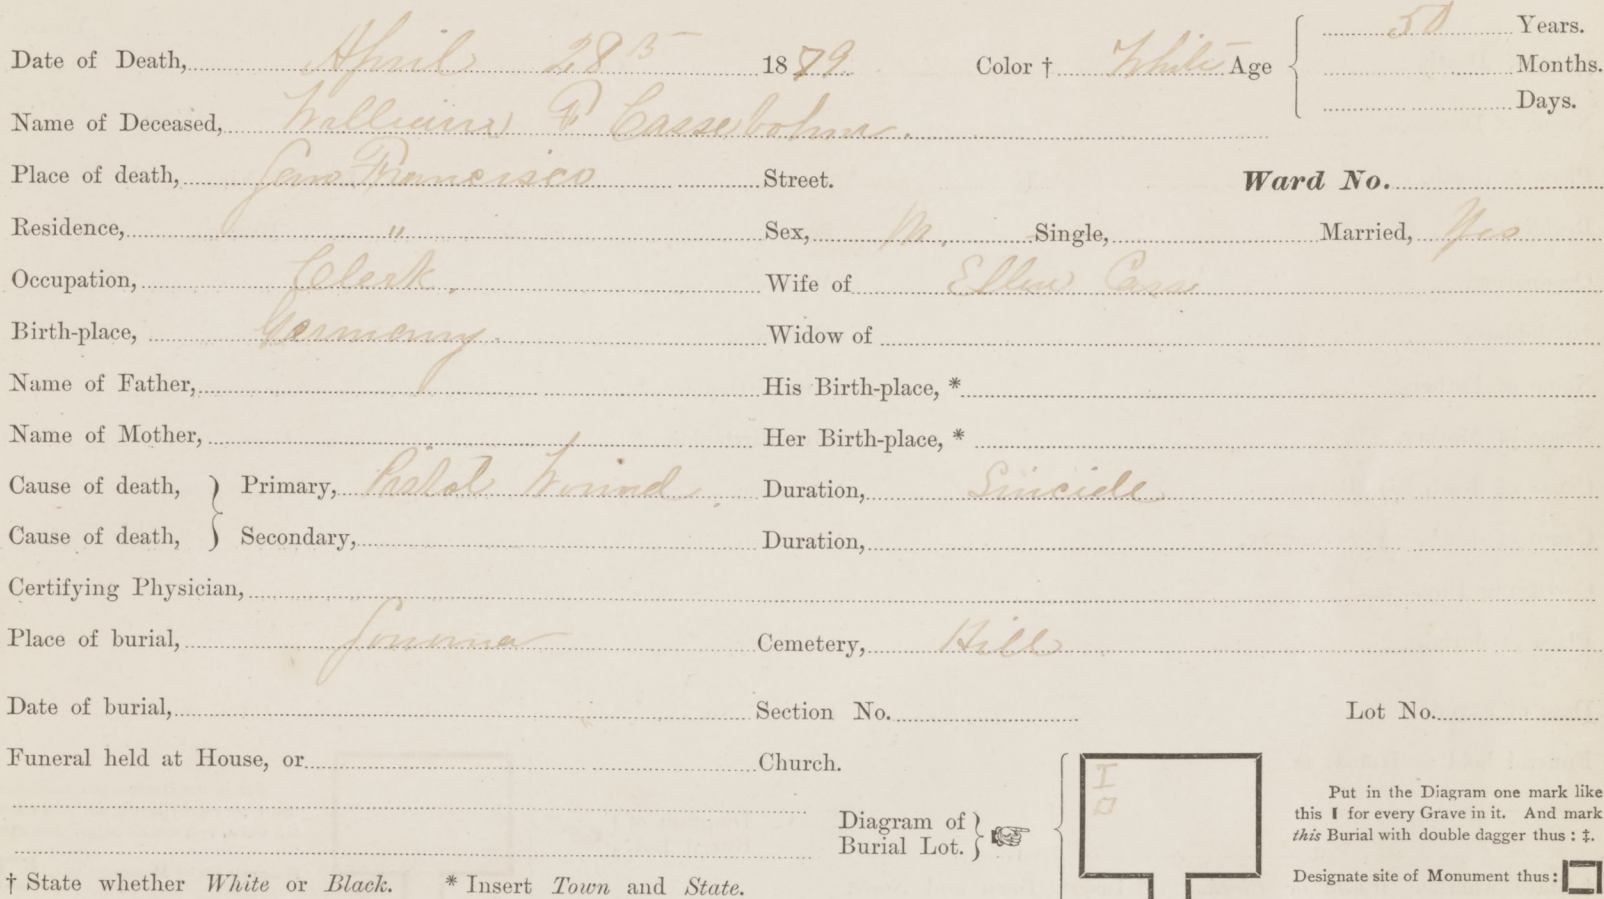 Date of Death, April 28th 1879 Color † White Age 50 Years.
Months.
Days.
Name of Deceased, William F Cassebohm.
Place of death, San Francisco Street. Ward No.
Residence, " Sex, M. Single, Married, Yes
Occupation, Clerk. Wife of Ellen Cass
Birth-place, Germany. Widow of
Name of Father, His Birth-place, *
Name of Mother, Her Birth-place, *
Cause of death, } Primary, Pistol Wound. Duration, Suicide
Cause of death, } Secondary, Duration,
Certifying Physician,
Place of burial, Sonoma Cemetery, Hill
Date of burial, Section No. Lot No.
Funeral held at House, or Church.
Diagram of
Burial Lot. }
I
Put in the Diagram one mark like
this I for every Grave in it. And mark
this Burial with double dagger thus : ‡.
Designate site of Monument thus :
† State whether White or Black. * Insert Town and State.